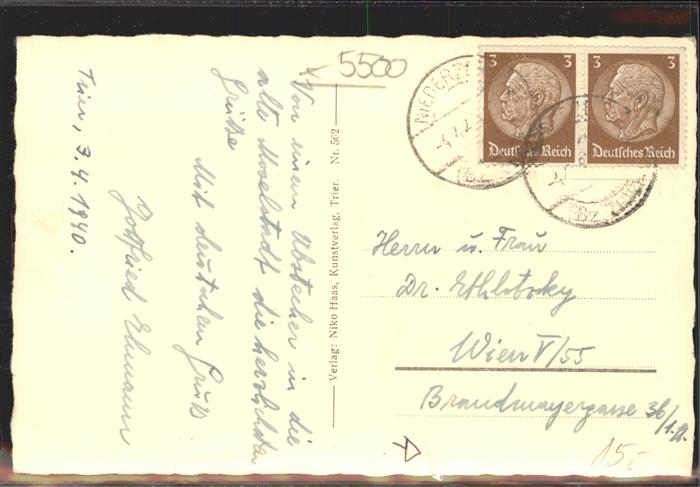 5500
Von einem Abstecher in die
alte Moselstadt die herzlichsten
Grüße
Mit deutschem Gruß
Gottfried Ehmann
Trier, 3.4.1940.
Verlag: Niko Haas, Kunstverlag, Trier. Nr. 562
3 3
Deutsches Reich
3 3
Deutsches Reich
NIEDERZ
(Bz.
(Bz.
Herrn u. Frau
Dr.
Wien V/55
Brandmayergasse 36/
15.-